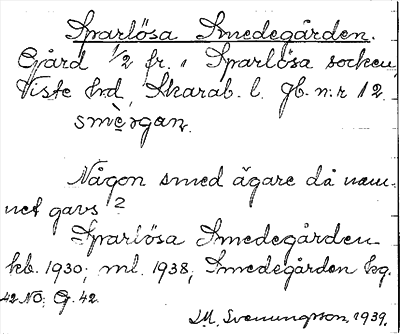 Sparlösa Smedegården.
Gård 1/2 fr. i Sparlösa socken,
Viste hd, Skarab. l. Jb. n:r 12.
smègan.
Någon smed ägare då nam-
net gavs?
Sparlösa Smedegården
kb. 1930; ml. 1938; Smedegården kg.
42 NO; G. 42.
I.M. Svenungsson, 1939.